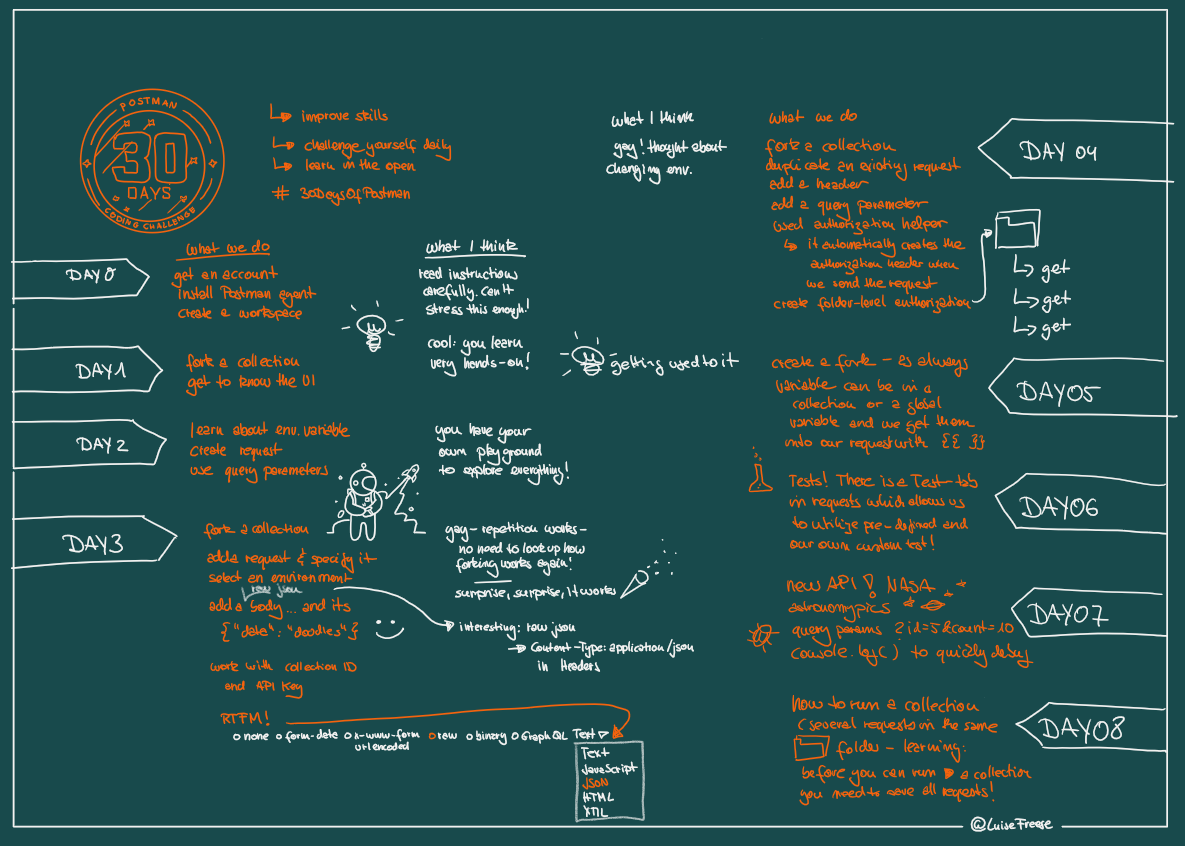 POSTMAN
30
DAYS
CODING CHALLENGE
↳ improve skills
↳ challenge yourself daily
↳ learn in the open
# 30DaysOfPostman
what we do
what I think
DAY 0
get an account
install Postman agent
create a workspace
read instructions
carefully. Can't
stress this enough!
cool: you learn
very hands-on!
DAY 1
fork a collection
get to know the UI
getting used to it
DAY 2
learn about env. variable
create request
use query parameters
you have your
own playground
to explore everything!
DAY 3
fork a collection
add a request & specify it
select an environment
raw json
add a body... and its
{"data": "doodles"}
work with collection ID
and API Key
yay - repetition works -
no need to look up how
forking works again!
surprise, surprise, it works
interesting: raw json
→ Content-Type: application/json
in Headers
RTFM!
o none o form-data o x-www-form
urlencoded
o raw o binary o GraphQL Text
Text
JavaScript
JSON
HTML
XML
what I think
yay! thought about
changing env.
what we do
DAY 04
fork a collection
duplicate an existing request
add a header
add a query parameter
used authorization helper
↳ it automatically creates the
authorization header when
we send the request
create folder-level authorization
↳ get
↳ get
↳ get
DAY 05
create a fork - as always
variable can be in a
collection or a global
variable and we get them
into our request with {{ }}
DAY 06
Tests! There is a Test-tab
in requests which allows us
to utilize pre-defined and
our own custom test!
DAY 07
new API! NASA
astronomypics
query params ?id=5&count=10
console.log() to quickly debug
DAY 08
how to run a collection
(several requests in the same
folder - learning:
before you can run ▶ a collection
you need to save all requests!
@LuiseFreese